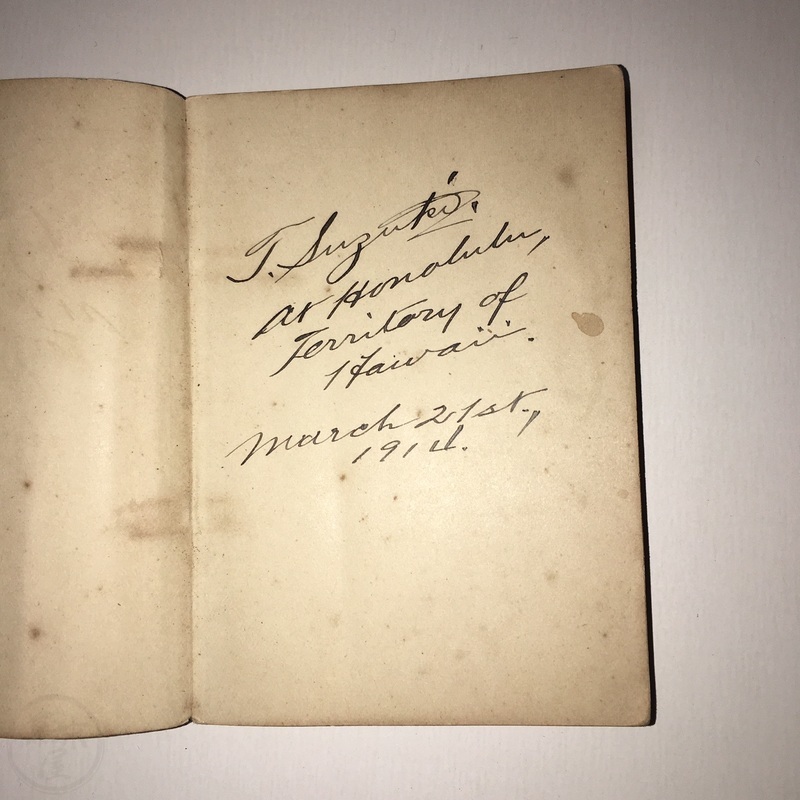 T. Suzuki.
At Honolulu,
Territory of
Hawaii.
March 21st.,
1914.